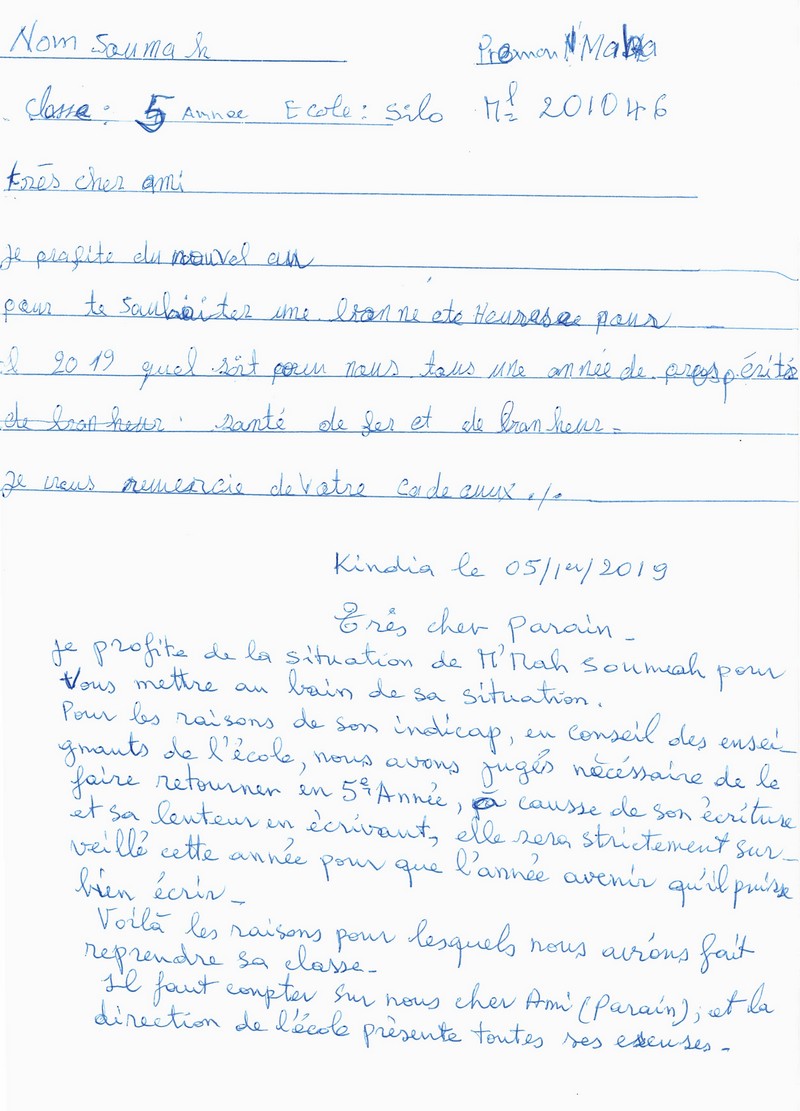 Nom Soumah Prenon N'Maha
Classe : 5 Année Ecole : Silo Ml 201046
très cher ami
je profite du nouvel an
pour te Souhaiter une bonne ete Heurese pour
l 2019 quel soit pour nous tous une année de prospérité
de bonheur santé de fer et de bonheur -
je vous remercie de Votre cadeaux ./.
Kindia le 05/1er/2019
Très cher Parain -
je profite de la situation de M'Mah Soumah pour
Vous mettre au bain de sa situation.
Pour les raisons de son indicap, en conseil des ensei-
gnants de l'école, nous avons jugés nécéssaire de le
faire retourner en 5e Année, à causse de son écriture
et sa lenteur en écrivant, elle sera strictement sur-
veillé cette année pour que l'année avenir qu'il puisse
bien écrir -
Voilà les raisons pour lesquels nous avions fait
reprendre sa classe -
Il faut conpter sur nous cher Ami (Parain), et la
direction de l'école présente toutes ses excuses -